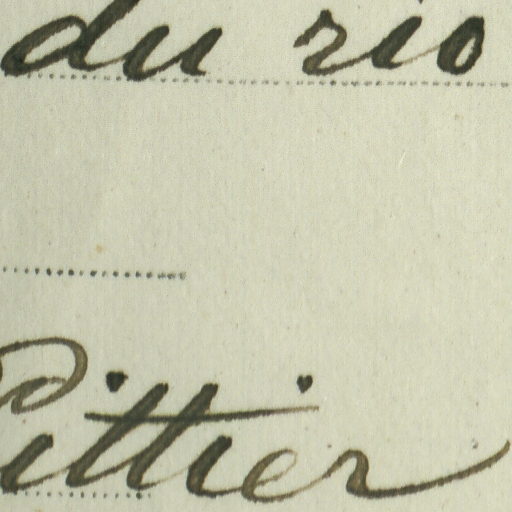 du rio
Pittier